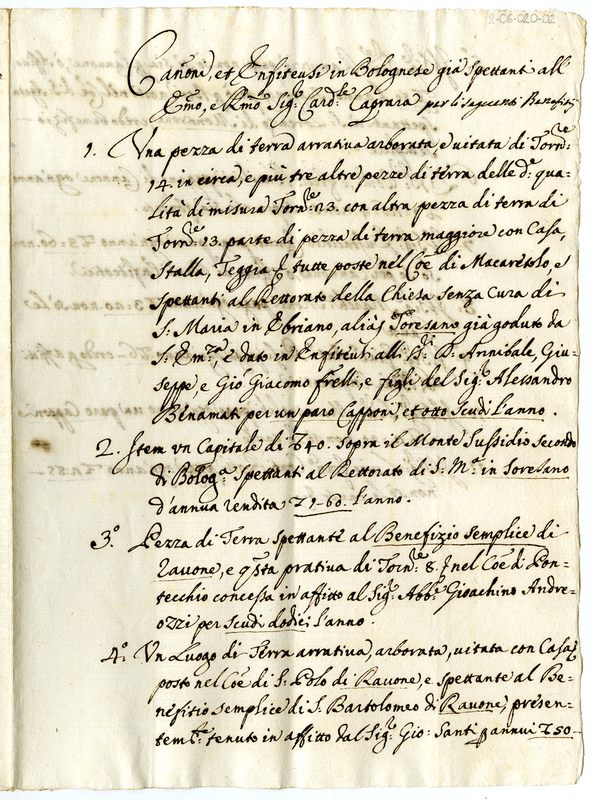 2-06-020-02
Canoni, et Enfiteusi in Bolognese già spettanti all'
Emo, e Rmo Sig.r Card.le Caprara per li seguenti Benefitij
1. Una pezza di terra arrativa arborata, e vitata di Torn.re
14. in circa, e più tre altre pezze di terra delle d.e qua=
lità di misura Torn.re 23. con altra pezza di terra di
Torn.re 13. parte di pezza di terra maggiore con Casa,
Stalla, Teggia & tutte poste nel Coe di Macaretolo, e
spettanti al Rettorato della Chiesa senza Cura di
S. Maria in Ebriano, aliàs Soresano già goduto da
S. Em.za, e dato in Enfiteusi alli Annibale, Giu=
seppe, e Gio Giacomo frelli, e figli del Sig.r Alessandro
Benamati per un paro Capponi, et otto scudi l'anno.
2. Item un Capitale di 40. sopra il Monte Sussidio secondo
di Bolog.a spettanti al Rettorato di S. M.a in Soresano
d'annua rendita 1-60. l'anno.
3.o Pezza di Terra spettante al Benefizio semplice di
Ravone, e qsta prativa di Torn.re 8. nel Coe di Pon=
tecchio concessa in affitto al Sig.r Abb.e Gioachino Andre=
ozzi per scudi dodici l'anno.
4.o Un Luogo di Terra arrativa, arborata, vitata con Casa &
posto nel Coe di S. Polo di Ravone, e spettante al Be=
nefitio semplice di S. Bartolomeo di Ravone, presen=
tem.te tenuto in affitto dal Sig.r Gio: Santi p annui 50-